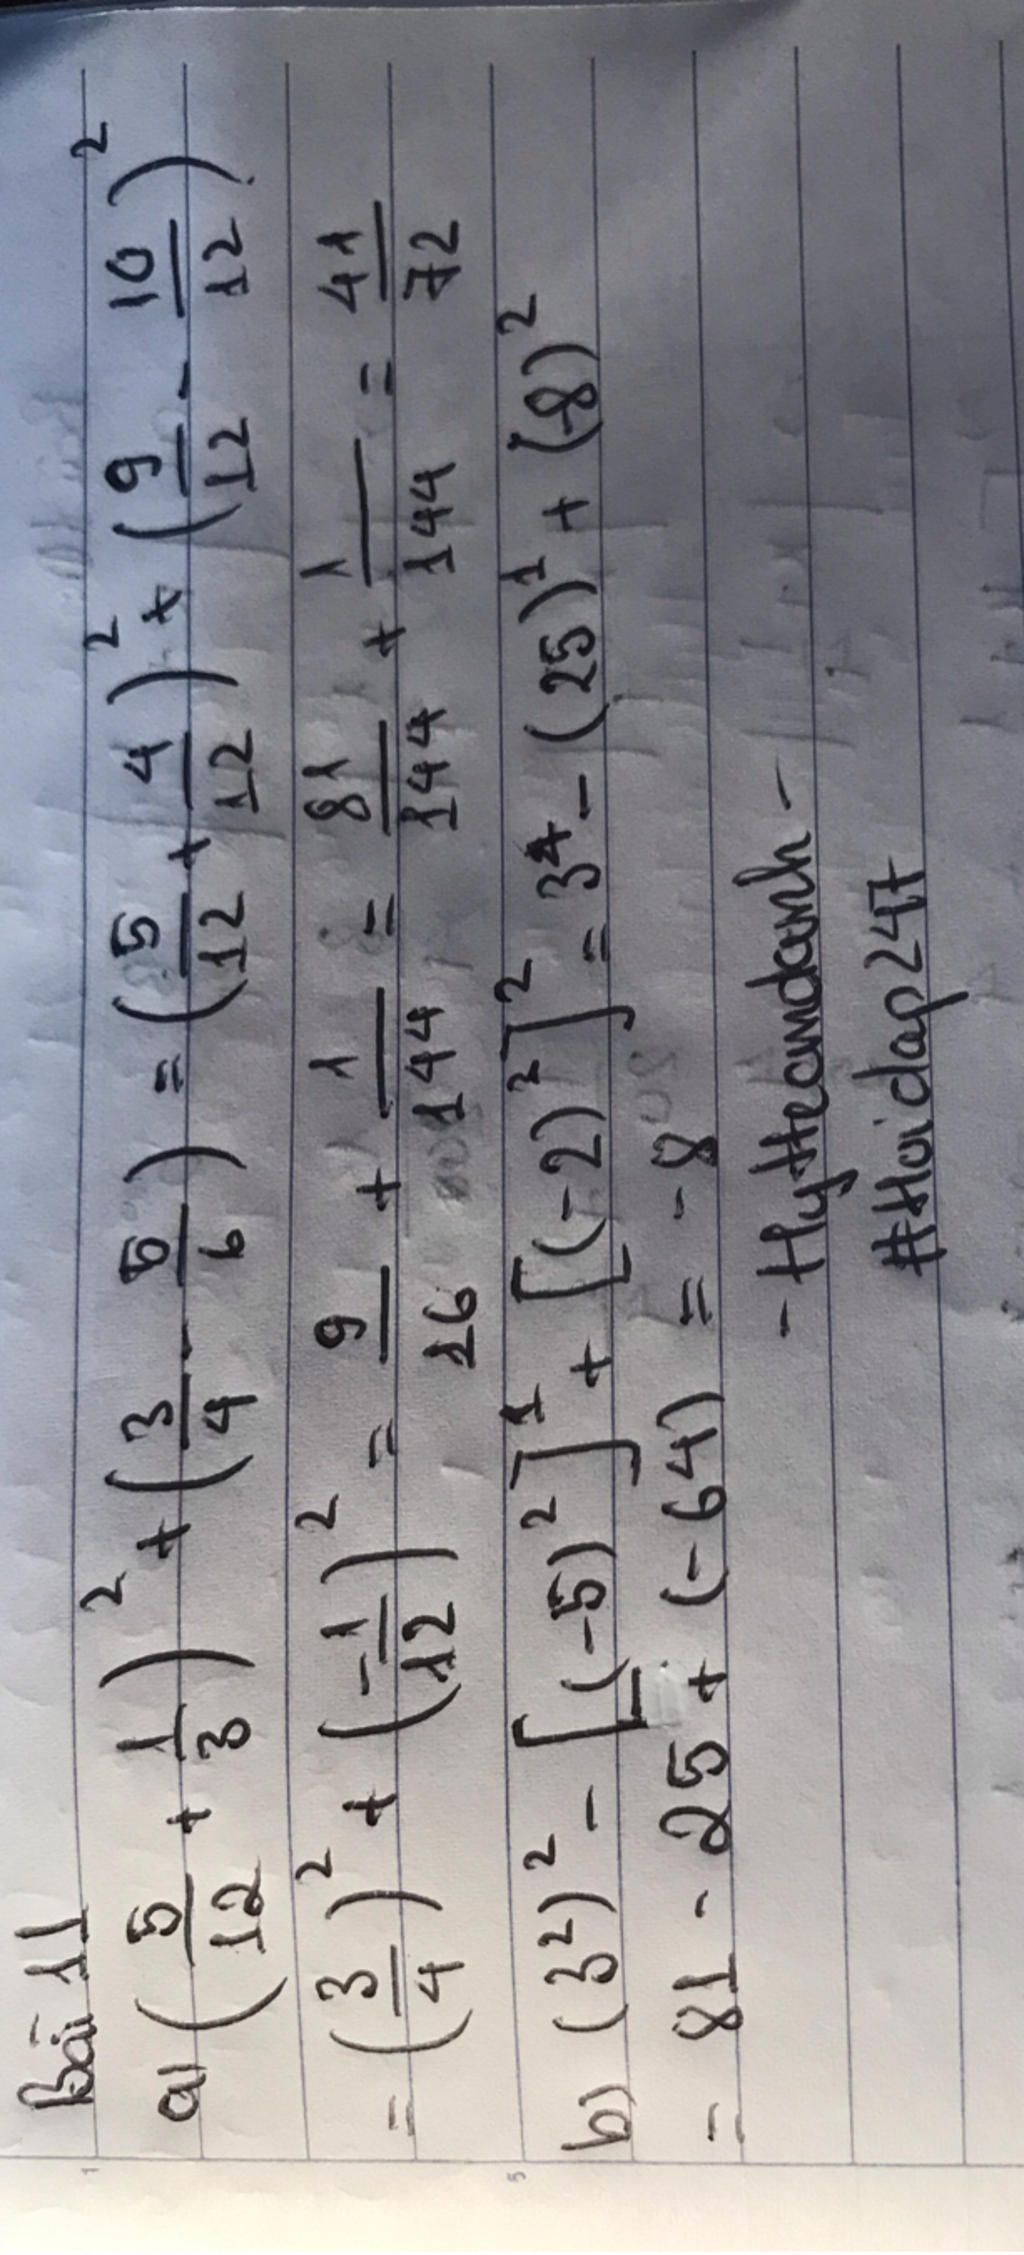 Bài 11
a) (5/12 + 1/3)² + (3/4 - 5/6) = (5/12 + 4/12)² + (9/12 - 10/12)²
= (3/4)² + (-1/12)² = 9/16 + 1/144 = 81/144 + 1/144 = 41/72
b) (3²)² - [(-5)²]¹ + [(-2)²]² = 3⁴ - (25)¹ + (-8)²
= 81 - 25 + (-64) = -8
- Hyttecamdanh -
#Hoidap247